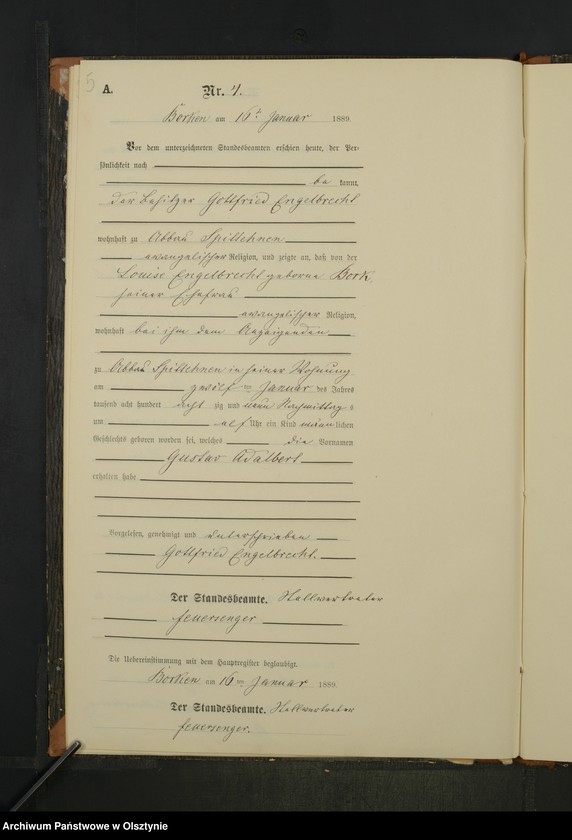 5
A.
Nr. 4.
Börken am 16t Januar 1889
Vor dem unterzeichneten Standesbeamten erschien heute, der Per-
sönlichkeit nach
be kannt,
der Besitzer Gottfried Engelbrecht
wohnhaft zu Abbau Spittehnen
evangelischer Religion, und zeigte an, daß von der
Louise Engelbrecht geborne Bork,
seiner Ehefrau
evangelischer Religion,
wohnhaft bei ihm dem Anzeigenden
zu Abbau Spittehnen in seiner Wohnung
am zwölf ten Januar des Jahres
tausend acht hundert acht zig und neun Nachmittag s
um elf Uhr ein Kind männ lichen
Geschlechts geboren worden sei, welches die Vornamen
Gustav Adalbert
erhalten habe
Vorgelesen, genehmigt und unterschrieben
Gottfried Engelbrecht.
Der Standesbeamte. Stellvertreter
Feuersenger
Die Uebereinstimmung mit dem Hauptregister beglaubigt.
Börken am 16 ten Januar 1889.
Der Standesbeamte. Stellvertreter
Feuersenger.
Archiwum Państwowe w Olsztynie